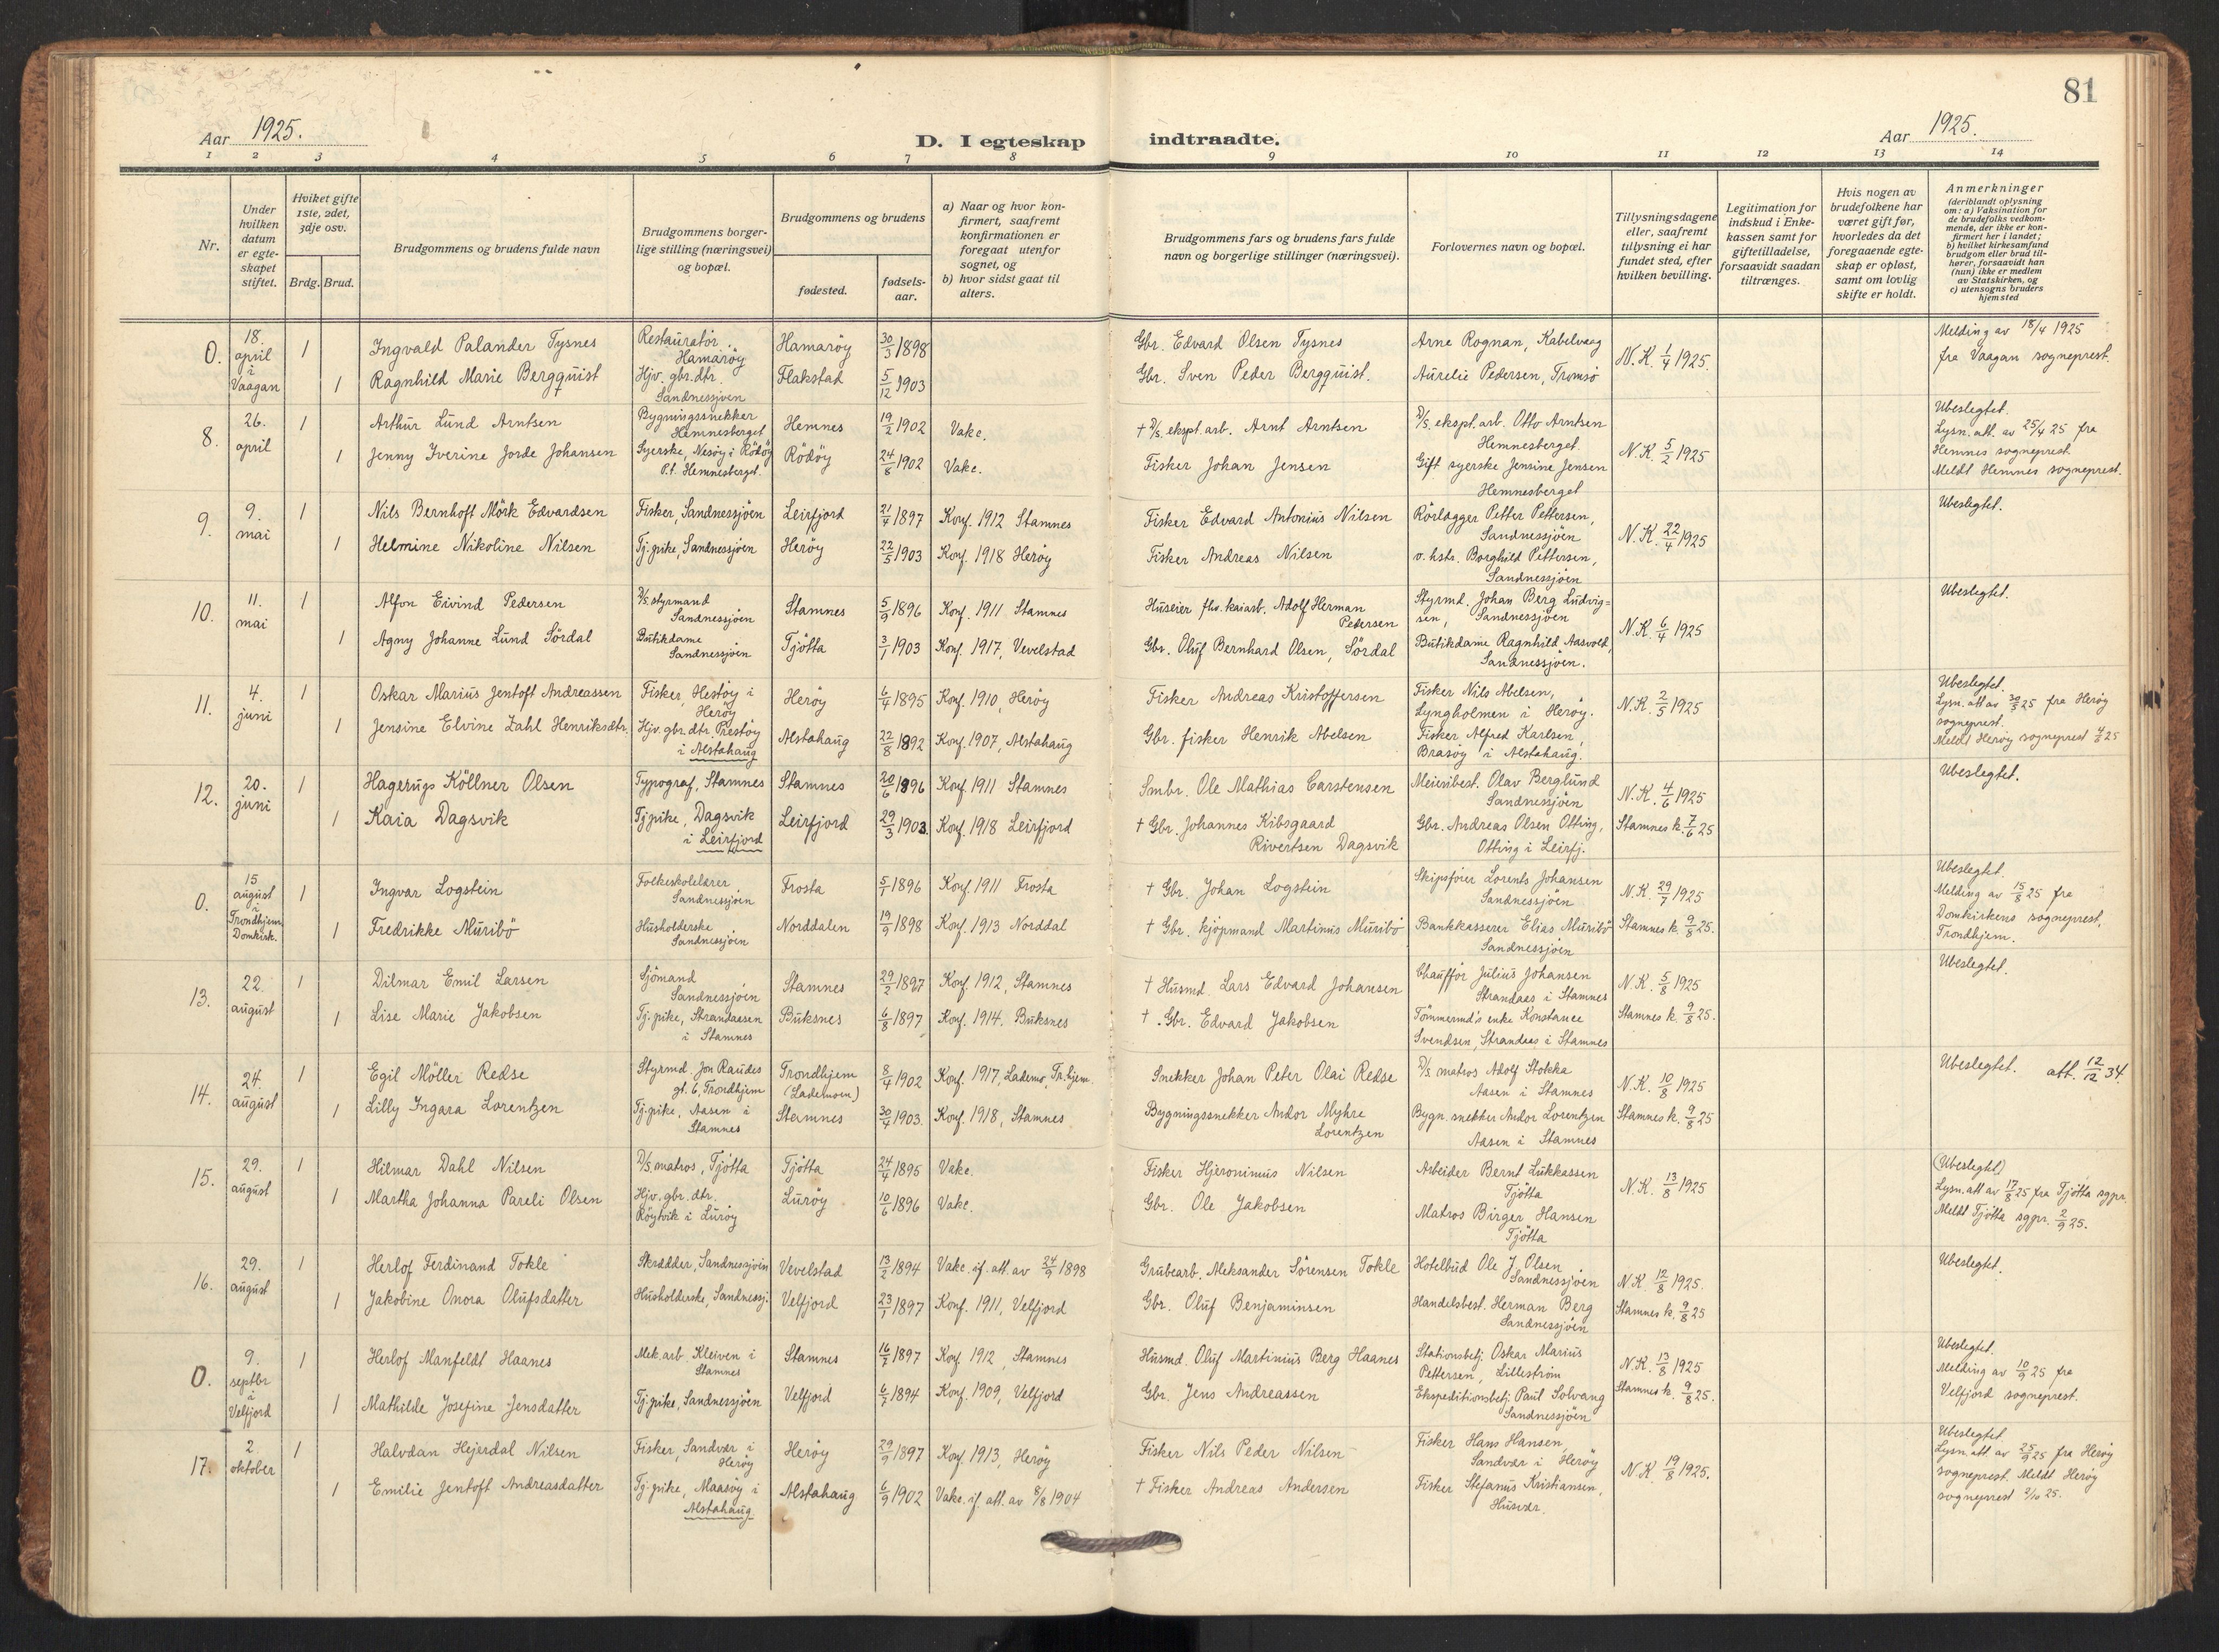 81
Aar 1925.
D. I egteskap indtraadte.
Aar 1925.
1 2 3 4 5 6 7 8 9 10 11 12 13 14
Nr.
Under hvilken datum er egte-skapet stiftet.
Hviket gifte 1ste, 2det, 3dje osv.
Brdg. Brud.
Brudgommens og brudens fulde navn
Brudgommens borger-lige stilling (næringsvei) og bopæl.
Brudgommens og brudens
fødested.
fødsels-aar.
a) Naar og hvor kon-firmert, saafremt konfirmationen er foregaat utenfor sognet, og
b) hvor sidst gaat til alters.
Brudgommens fars og brudens fars fulde navn og borgerlige stillinger (næringsvei).
Forlovernes navn og bopæl.
Tillysningsdagene eller, saafremt tillysning ei har fundet sted, efter hvilken bevilling.
Legitimation for indskud i Enke-kassen samt for giftetilladelse, forsaavidt saadan tiltrænges.
Hvis nogen av brudefolkene har været gift før, hvorledes da det foregaaende egte-skap er opløst, samt om lovlig skifte er holdt.
Anmerkninger (deriblandt oplysning om: a) Vaksination for de brudefolks vedkom-mende, der ikke er kon-firmert her i landet; b) hvilket kirkesamfund brudgom eller brud til-hører, forsaavidt han (hun) ikke er medlem av Statskirken, og c) utensogns bruders hjemsted
0. 18. april i Vaagan 1 Ingvald Palander Tysnes Restauratør. Hamarøy Hamarøy 30/3 1898 Gbr. Edvard Olsen Tysnes Arne Rognan, Kabelvaag N.K. 1/4 1925. Melding av 18/4 1925 fra Vaagan sogneprest.
1 Ragnhild Marie Bergquist Hjv. gbr.dtr. Sandnessjøen Flakstad 5/12 1903 Gbr. Sven Peder Bergquist. Aurelie Pedersen, Tromsø
8. 26. april 1 Arthur Lund Arntsen Bygningssnekker Hemnesberget Hemnes 19/2 1902 Vakc. † D/S. ekspt. arb. Arnt Arntsen D/S. ekspt. arb. Otto Arntsen Hemnesberget N.K. 5/2 1925 Ubeslegtet. Lysn. att. av 25/4 25 fra Hemnes sogneprest. Meldt Hemnes sogneprest.
1 Jenny Iverine Jorde Johansen Syerske, Nesøy i Rödöy P.t. Hemnesberget. Rödöy 24/8 1902 Vakc. Fisker Johan Jensen Gift syerske Jensine Jensen Hemnesberget
9. 9. mai 1 Nils Bernhoft Mörk Edvardsen Fisker, Sandnessjöen Leirfjord 21/4 1897 Konf. 1912 Stamnes Fisker Edvard Antonius Nilsen Rörlægger Petter Pettersen, Sandnessjöen N.K. 22/4 1925 Ubeslegtet.
1 Helmine Nikoline Nilsen Tj.pike, Sandnessjöen Heröy 22/5 1903 Konf. 1918 Heröy Fisker Andreas Nilsen o. hstr. Borghild Pettersen, Sandnessjöen
10. 11. mai 1 Alfon Eivind Pedersen D/S. styrmand Sandnessjöen Stamnes 5/9 1896 Konf. 1911 Stamnes Huseier fhv. kaiarb. Adolf Herman Pedersen Styrmd. Johan Berg Ludvig=sen, Sandnessjöen N.K. 6/4 1925 Ubeslegtet.
1 Agny Johanne Lund Sördal Butikdame Sandnessjöen Tjötta 3/1 1903 Konf. 1917, Vevelstad Gbr. Oluf Bernhard Olsen, Sördal Butikdame Ragnhild Aasvold, Sandnessjöen.
11. 4. juni 1 Oskar Marius Jentoft Andreassen Fisker, Hestöy i Heröy Heröy 6/4 1895 Konf. 1910, Heröy Fisker Andreas Kristoffersen Fisker Nils Abelsen, Lyngholmen i Heröy. N.K. 2/5 1925 Ubeslegtet. Lysn. att av 30/5 25 fra Heröy sogneprest. Meldt Heröy sogneprest 4/6 25
1 Jensine Elvine Zahl Henriksdtr. Hjv. gbr. dtr. Prestöy i Alstahaug Alstahaug 22/8 1892 Konf. 1907, Alstahaug Gbr. fisker Henrik Abelsen Fisker Alfred Karlsen, Brasöy i Alstahaug.
12. 20. juni 1 Hagerups Köllner Olsen Typograf, Stamnes Stamnes 20/6 1896 Konf. 1911 Stamnes Smbr. Ole Mathias Carstensen Meieribest. Olav Berglund Sandnessjöen N.K. 4/6 1925 Ubeslegtet.
1 Kaia Dagsvik Tj.pike, Dagsvik i Leirfjord Leirfjord 29/3 1903. Konf. 1918 Leirfjord † Gbr. Johannes Kibsgaard Rivertsen Dagsvik Gbr. Andreas Olsen Otting, Otting i Leirfj. Stamnes k. 7/6 25
0. 15 august i Trondhjem Domkirk. 1 Ingvar Logstein Folkeskolelærer, Sandnessjöen Frosta 5/1 1896 Konf. 1911 Frosta † Gbr. Johan Logstein Skipsförer Lorents Johansen Sandnessjöen N.K. 29/7 1925 Ubeslegtet. Melding av 15/8 25 fra Domkirkens sogneprest, Trondhjem.
1 Fredrikke Muribö Husholderske Sandnessjöen Norddalen 19/9 1898 Konf. 1913 Norddal † Gbr. kjöpmand Martinus Muribö Bankkasserer Elias Muribö Sandnessjöen Stamnes k. 9/8 25.
13. 22. august 1 Dilmar Emil Larsen Sjömand Sandnessjöen Stamnes 29/2 1897 Konf. 1912, Stamnes † Husmd. Lars Edvard Johansen Chauffør Julius Johansen Strandaas i Stamnes N.K. 5/8 1925 Ubeslegtet.
1 Lise Marie Jakobsen Tj.pike, Strandaasen i Stamnes Buksnes 6/8 1897 Konf. 1914. Buksnes † Gbr. Edvard Jakobsen Tömmermd's enke Konstance Svendsen, Strandaas i Stamnes Stamnes k. 9/8 25.
14. 24. august 1 Egil Möller Redse Styrmd. Jon Raudes gt. 6, Trondhjem Trondhjem (Lademoen) 8/4 1902 Konf. 1917, Lademo, Tr.hjem. Snekker Johan Peter Olai Redse D/S. matros Adolf Stokka Aasen i Stamnes N.K. 10/8 1925 Ubeslegtet. att. 12/12 34.
1 Lilly Ingara Lorentzen Tj.pike, Aasen i Stamnes Stamnes 30/4 1903. Konf. 1918, Stamnes Bygningssnekker Andor Myhre Lorentzen Bygn. snekker Andor Lorentzen Aasen i Stamnes Stamnes k. 9/8 25
15. 29. august 1 Hilmar Dahl Nilsen D/S. matros, Tjötta Tjötta 24/4 1895 Vakc. Fisker Hjeronimus Nilsen Arbeider Bernt Lukkassen Tjötta N.K. 13/8 1925 (Ubeslegtet) Lysn. att av 17/8 25 fra Tjötta sgpr. Meldt Tjötta sgpr. 2/9 25.
1 Martha Johanna Pareli Olsen Hjv. gbr. dtr. Röytvik i Luröy Luröy 10/6 1896 Vakc. Gbr. Ole Jakobsen Matros Birger Hansen Tjötta
16. 29. august 1 Herlof Ferdinand Tokle Skrædder, Sandnessjöen Vevelstad 13/2 1894 Vakc. if. att. av 24/9 1898 Grubearb. Aleksander Sörensen Tokle Hotelbud Ole J. Olsen Sandnessjöen N.K. 12/8 1925. Ubeslegtet.
1 Jakobine Onora Olufsdatter Husholderske, Sandnessj. Velfjord 23/1 1897 Konf. 1911, Velfjord Gbr. Oluf Benjaminsen Handelsbest. Herman Berg Sandnessjöen Stamnes k. 9/8 25
0. 9. septbr i Velfjord 1 Herlof Manfeldt Haanes Mek. arb. Kleiven i Stamnes Stamnes 16/7 1897 Konf. 1912, Stamnes Husmd. Oluf Martinius Berg Haanes Stationsbetj. Oskar Marius Pettersen, Lilleström N.K. 13/8 1925 Ubeslegtet. Melding av 10/9 25 fra Velfjord sogneprest.
1 Mathilde Josefine Jensdatter Tj.pike, Sandnessjöen Velfjord 6/7 1894 Konf. 1909, Velfjord Gbr. Jens Andreassen Ekspeditionsbetj. Paul Solvang Sandnessjöen Stamnes k. 9/8 25.
17. 2. oktober 1 Halvdan Hejerdal Nilsen Fisker, Sandvær i Heröy Heröy 29/9 1897 Konf. 1913, Heröy Fisker Nils Peder Nilsen Fisker Hans Hansen, Sandvær i Heröy N.K. 19/8 1925. Ubeslegtet. Lysn. att av 25/9 25 fra Heröy sogneprest. Meldt Heröy sogneprest 2/10 25.
1 Emilie Jentoft Andreasdatter Tj.pike, Maasöy i Alstahaug Alstahaug 6/9 1902 Vakc. if. att. av 8/8 1904 † Fisker Andreas Andersen Fisker Stefanus Kristiansen, Husvær.